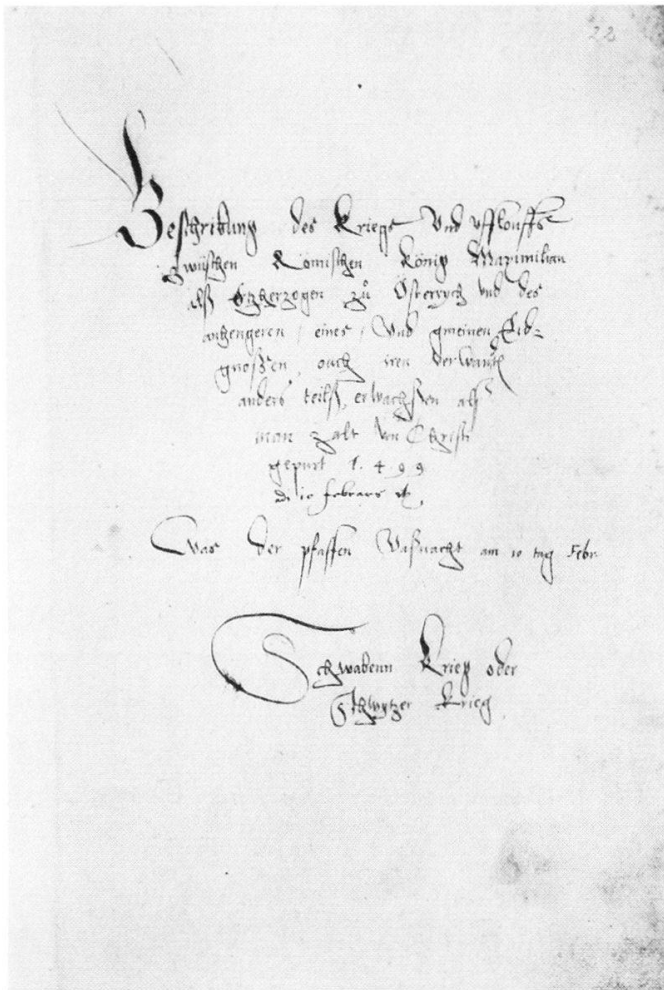 28
Beschribung des Kriegs vnd vfflouffs
zwüschen Römischen König Maximilian
als Ertzherzogen zů Österrych vnd des
anhengeren, eines, Vnd gmeinen Eid-
gnoßen, ouch iren verwandten
anders teilß, erwachßen alß
man zalt von Christi
gepurt 1.4.99
10 februars
Was der pfaffen Vaßnacht am 10 tag Febr.
Schwabenn Krieg oder
Schwytzer Krieg